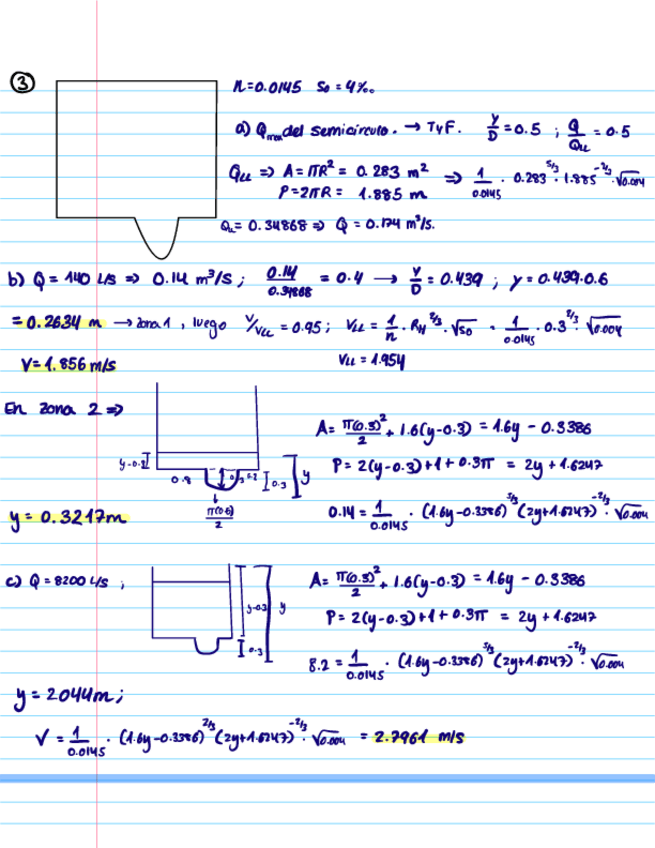 ③
n=0.0145 So = 4‰
a) Qmax del semicirculo. → TyF. Y/D = 0.5 ; Q/QLL = 0.5
QLL => A = πR² = 0.283 m² => 1/0.0145 · 0.283^5/3 · 1.885^-2/3 · √0.004
P = 2πR = 1.885 m
QLL = 0.34868 => Q = 0.174 m³/s.
b) Q = 140 L/s => 0.14 m³/s ; 0.14/0.34868 = 0.4 → Y/D = 0.439 ; y = 0.439·0.6
= 0.2634 m → zona 1, luego V/VLL = 0.95 ; VLL = 1/n · RH^2/3 · √So = 1/0.0145 · 0.3^2/3 · √0.004
V = 1.856 m/s
VLL = 1.954
En zona 2 =>
A = π(0.3)²/2 + 1.6(y-0.3) = 1.6y - 0.3386
y-0.3
0.8
0.3
y
P = 2(y-0.3)+1+0.3π = 2y + 1.6247
π(0.6)/2
y = 0.3217m
0.14 = 1/0.0145 · (1.6y-0.3386)^5/3 (2y+1.6247)^-2/3 · √0.004
c) Q = 8200 L/s ;
A = π(0.3)²/2 + 1.6(y-0.3) = 1.6y - 0.3386
y-0.3
y
0.3
P = 2(y-0.3)+1+0.3π = 2y + 1.6247
8.2 = 1/0.0145 · (1.6y-0.3386)^5/3 (2y+1.6247)^-2/3 · √0.004
y = 2044m ;
V = 1/0.0145 · (1.6y-0.3386)^2/3 (2y+1.6247)^-2/3 · √0.004 = 2.7961 m/s